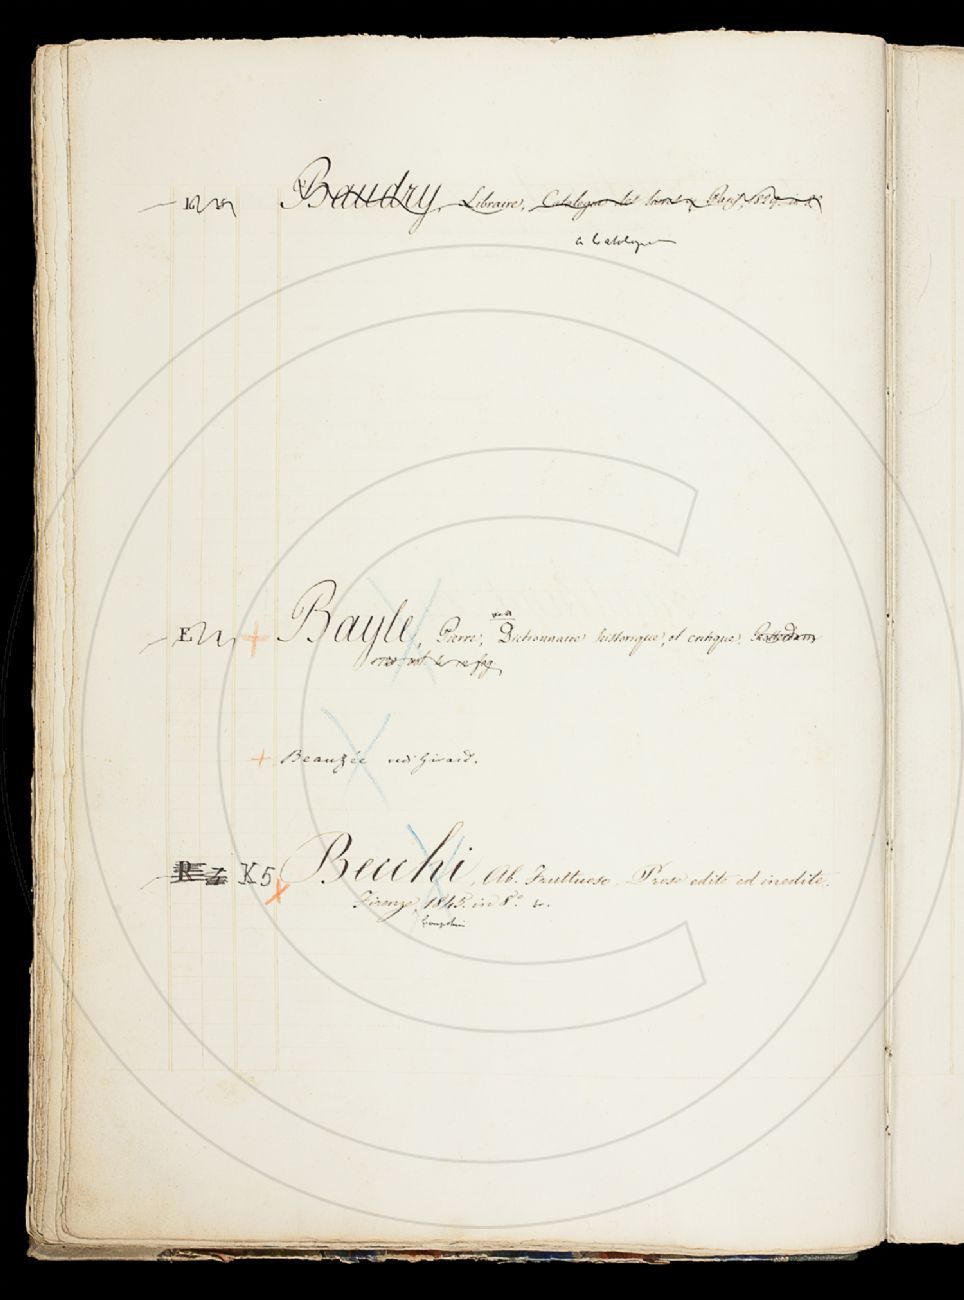 Baudry, Libraire, Catalogue
a Catalogue
E Bayle, Pierre, Dictionnaire historique, et critique.
Beauzée vedi Girard.
R K5 Becchi, Ab. Fruttuoso, Prose edite ed inedite.
Firenze, 1845. in 8.°